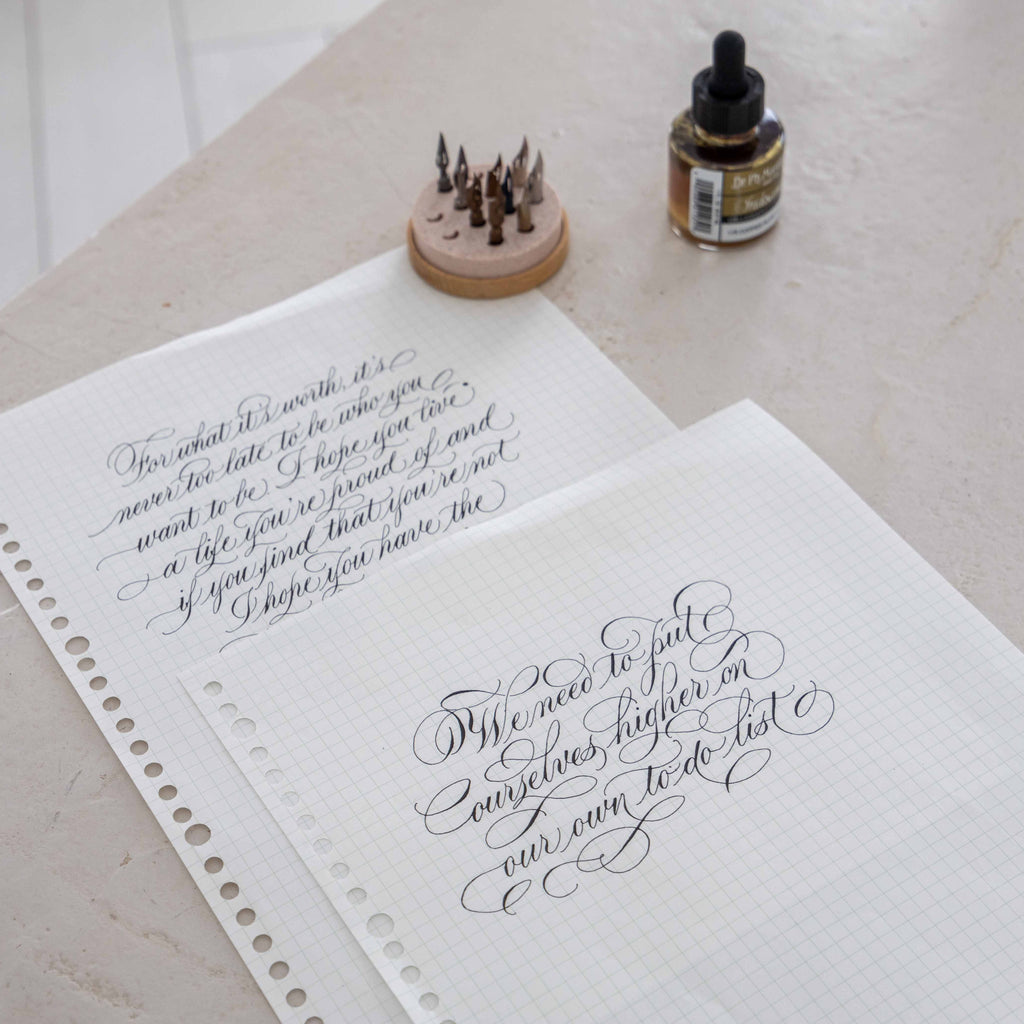 For what it's worth, it's
never too late to be who you
want to be. I hope you live
a life you're proud of and
if you find that you're not
I hope you have the
We need to put
ourselves higher on
our own to do list
Dr. Ph. Martin's